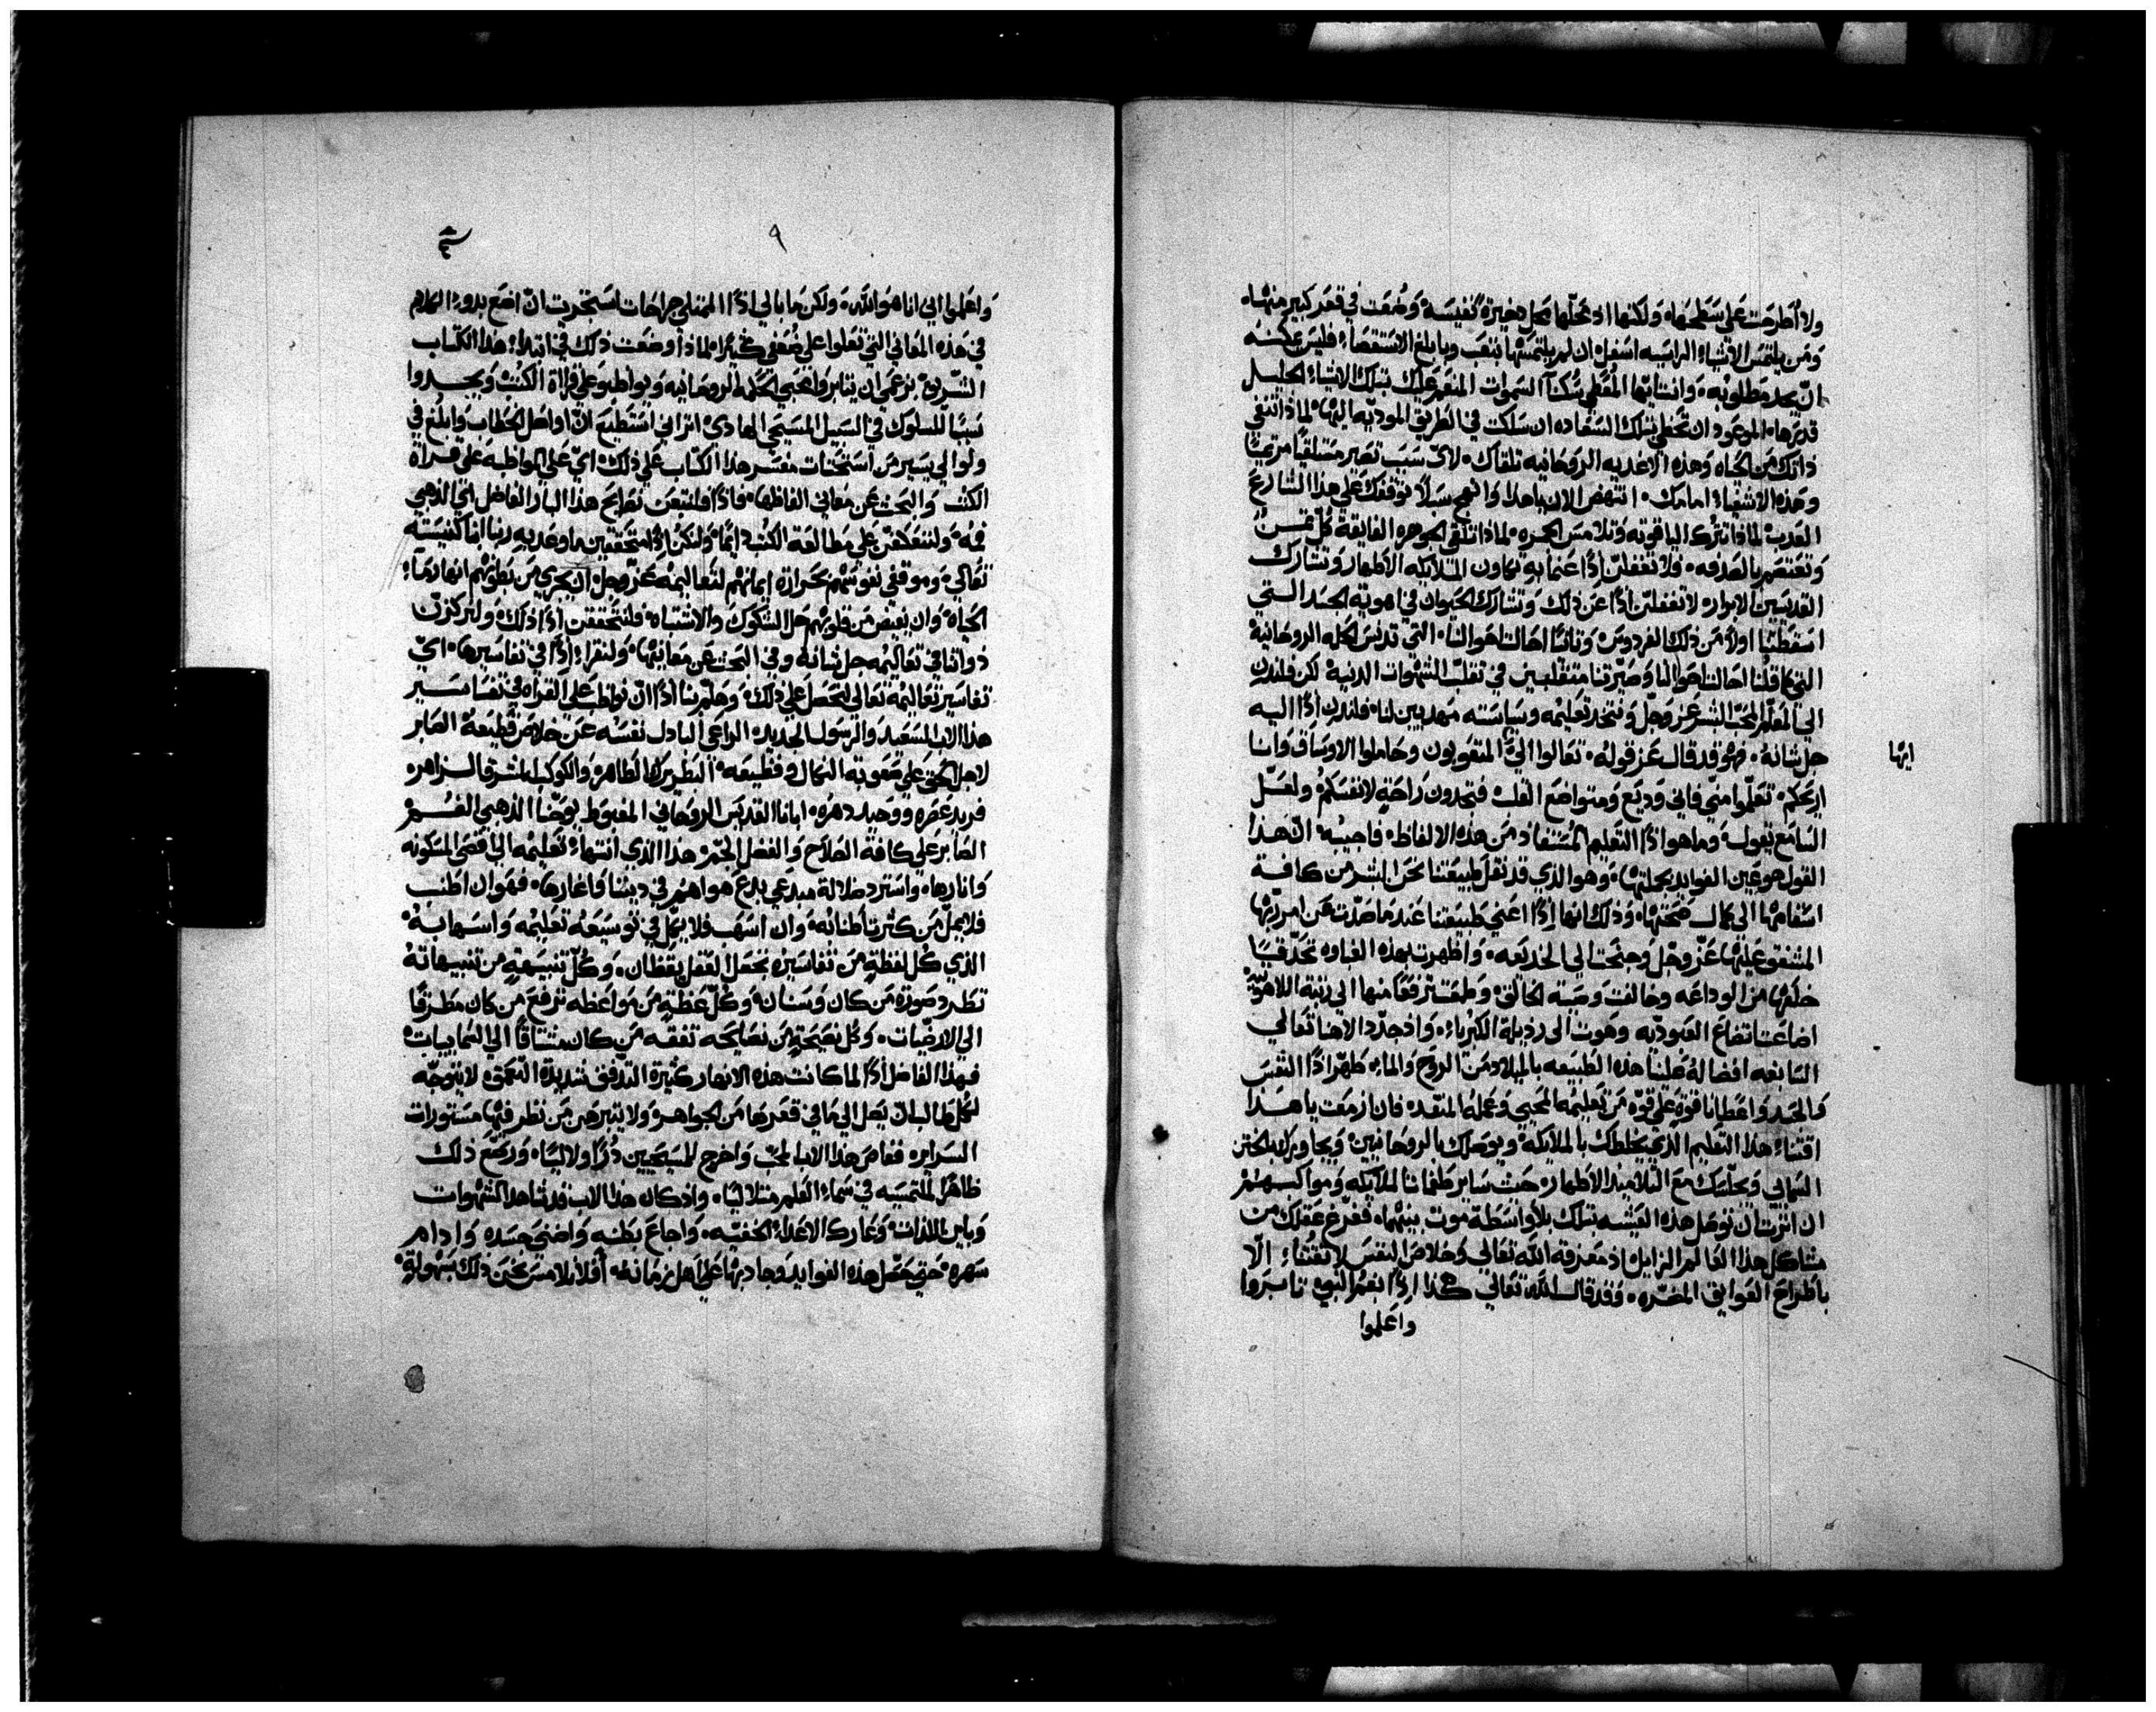 ولا أطرحت على سطحها، ولكنها اذ محلها محل دخيرة نفيسه وضعت في قعر كبير منها.
ومن يلتمس الاشياء الراسيه اسفل ان لم يلتمسها بتعب وبابلغ الاستقصاء فليس يمكنه
ان يجد مطلوبه، وانت ايها المعطي سكنا السموات المنعم عليك بتلك الاشياء الجليل
قدرها، الموعود ان تحظي بتلك السعاده ان سلكت في الطريق الموديه اليها، لماذا تنفي
ذاتك من الحياه وهذه الاغديه الروحانيه تلقاك، لاي سبب تصير مستلقيا مرتميا
وهذه الاشياء امامك، انتهض الان يا هذا وانهج سبلا توقفك على هذا الشارع
العدب لماذا تترك الياقوته وتلامس الجمره لماذا تلقي الجوهره الفايقة كل ثمن
وتعتصم بالصدفه، فلا تغفلن اذا عما به تكون الملايكه الاطهار وتشارك
القديسين الابرار، لا تغفلن اذا عن ذلك وتشارك الحيوان في اهوية الجسد التي
اسقطتنا اولا من ذلك الفردوس وثانيا احالت احوالنا، التي تدنس الحله الروحانية
التي كما قلنا احالت احوالنا وصيرتنا متقلبين في تقلب الشهوات الدنية لكن فلندن
الي المعلم المحب البشر عز وجل ونتخد تعليمه وسياسته مهديين لنا، فلندن اذا اليه
جل شانه، فهو قد قال عز قوله، تعالوا الي المتعوبون وحاملوا الاوساق وانا
ايها
اريحكم، تعلموا مني فاني وديع ومتواضع القلب فتجدون راحة لانفسكم ولعل
السامع يقول، وما هو اذا التعليم المستفاد من هذه الالفاظ، فاجيبه، ان هذا
القول هو عين الفوايد بجملتها، وهو الذي قد نقل طبيعتنا نحن البشر من كافة
اسقامها الى كمال صحتها، وذلك انها اذا اعني طبيعتنا عند ما صدت عن امر ربها
المشفق عليها عز وجل وجنحت الي الخديعه، واظهرت بهذه الغباوه تحدقيا
خلعها من الوداعه وخالفت وصية الخالق، وطمعت ترفعا منها الي رتبة اللاهوتية
اضاعت اتضاع العبوديه وهوت الى رذيلة الكبرياء، واذ جدد الاهنا تعالي
السابغه افضاله علينا هذه الطبيعه بالميلاد من الروح والماء، طهر اذا النفس
والجسد واعطانا قوة على قوه من تعليمه المحيي وعمله المنقد، فان ازمعت يا هذا
اقتناء هذا التعليم الذي يخلطك بالملايكه ويوصلك بالروحانيين، ويجاوبرك بالختن
السماي ويجلسك مع التلاميذ الاطهار، حيث ساير طغمات الملايكه ومواكبهم
ان اثرت ان توصل هذه العيشه بتلك بلا واسطة موت بينهما، ففرغ عقلك من
مشاكل هذا العالم الزايل اذ معرفة الله تعالي وخلاص النفس لا تقتناء الا
باطراح العوايق المضره، فقد قال الله تعالي هكذا اذا بفم النبي تابروا
واعلموا
٩
واعلموا اني انا هو الله، ولكن ما بالي اذا الممتلي جراحات استجريت ان اضع بدوء الكلام
في هذه المعاني التي تعلوا على ضعفي كثيرا، لماذا وضعت ذلك في ابتداء هذا الكتاب
الشريف، بزعمي ان يثابروا محبي الحكمه الروحانيه ويواظبوا على قراة الكتب ويجدوا
سببا للسلوك في السبيل المسيحي الهادي، اتراني استطيع ان اواصل الخطاب وابلغ في
ولو الي يسير من استحثات مفسر هذا الكتاب علي ذلك، اي علي المواظبه على قراة
الكتب والبحث عن معاني الفاظها، فاذا فلنتبعن نصايح هذا البار الفاضل اني الذهبي
فمه، ولنعكفن على مطالعة الكتب دايما، ولنكن اذا متحققين ما وعد به ربنا انفا كنيسته
تعالي، وموقفي نفوسهم بحرارة ايمانهم لتعاليمه عز وجل، ان يجري من بطونهم انهار ماء
الحياه، وان ينقض من قلوبهم حل الشكوك والاشتباه، فلنتحققن اذا ذلك، ولنركزن
ذواتنا في تعاليمه جل شانه وفي البحث عن معانيها، ولنقراء اذا في تفاسيرها، اي
تفاسير تعاليمه تعالى لنحصل علي ذلك، وهلم بنا اذا ان نواظب على القراه في تفاسير
هذا الاب السعيد والرسول الجديد، الراعي البادل نفسه عن خلاص قطيعه، الصابر
لاجل الحق على صعوبة النكال وفظيعه، البطريرك الطاهر، والكوكب المشرق الزاهر
فريد عصره ووحيد دهره، ابانا القديس الروحاني المغبوط يوحنا الذهبي الفم
الصابر علي كافة الصلاح والفضل الجم، هذا الذي انتهاء تعليمه الي اقصى المسكونه
وانارها، واسترد ضلالة مبدعي بدع هواهم في ديننا واغارها، فهو ان اطنب
فلا يمل من كثرت اطنانه، وان اسهب فلا يكل في توسيعه تعليمه واسهابه
الذي كل لفظة من تفاسيره تجعل العقل يقظان، وكل تنبيهة من تنبيهاته
تطرد صورة من كان وسنان، وكل عظة من مواعظه ترفع من كان مطرقا
الي الارضيات، وكل نصيحة من نصايحه تفقه من كان مشتاقا الي السماييات
فهذا الفاضل اذا لما كانت هذه الانهار كثيرة التدفق شديدة التعمق، لا يتوجه
لكل طالب ان يصل الي ما في قعرها من الجواهر، ولا يتبرهن من نظر فيها مستورات
السراير، فغاص هذا الاب المحب واخرج للمسيحيين دررا ولاليا، ورصع ذلك
ظاهرا لملتمسيه في سماء العلم متلاليا، واذ كان هذا الاب قد شاهد الشهوات
وباين اللذات، وعارك الاعداء الخفيه، واجاع بطنه واضنى جسده وادام
سهره، حتي حصل هذه الفوايد وجاد بها على اهل زمانه، افلا نلامس نحن ذلك بسهولة